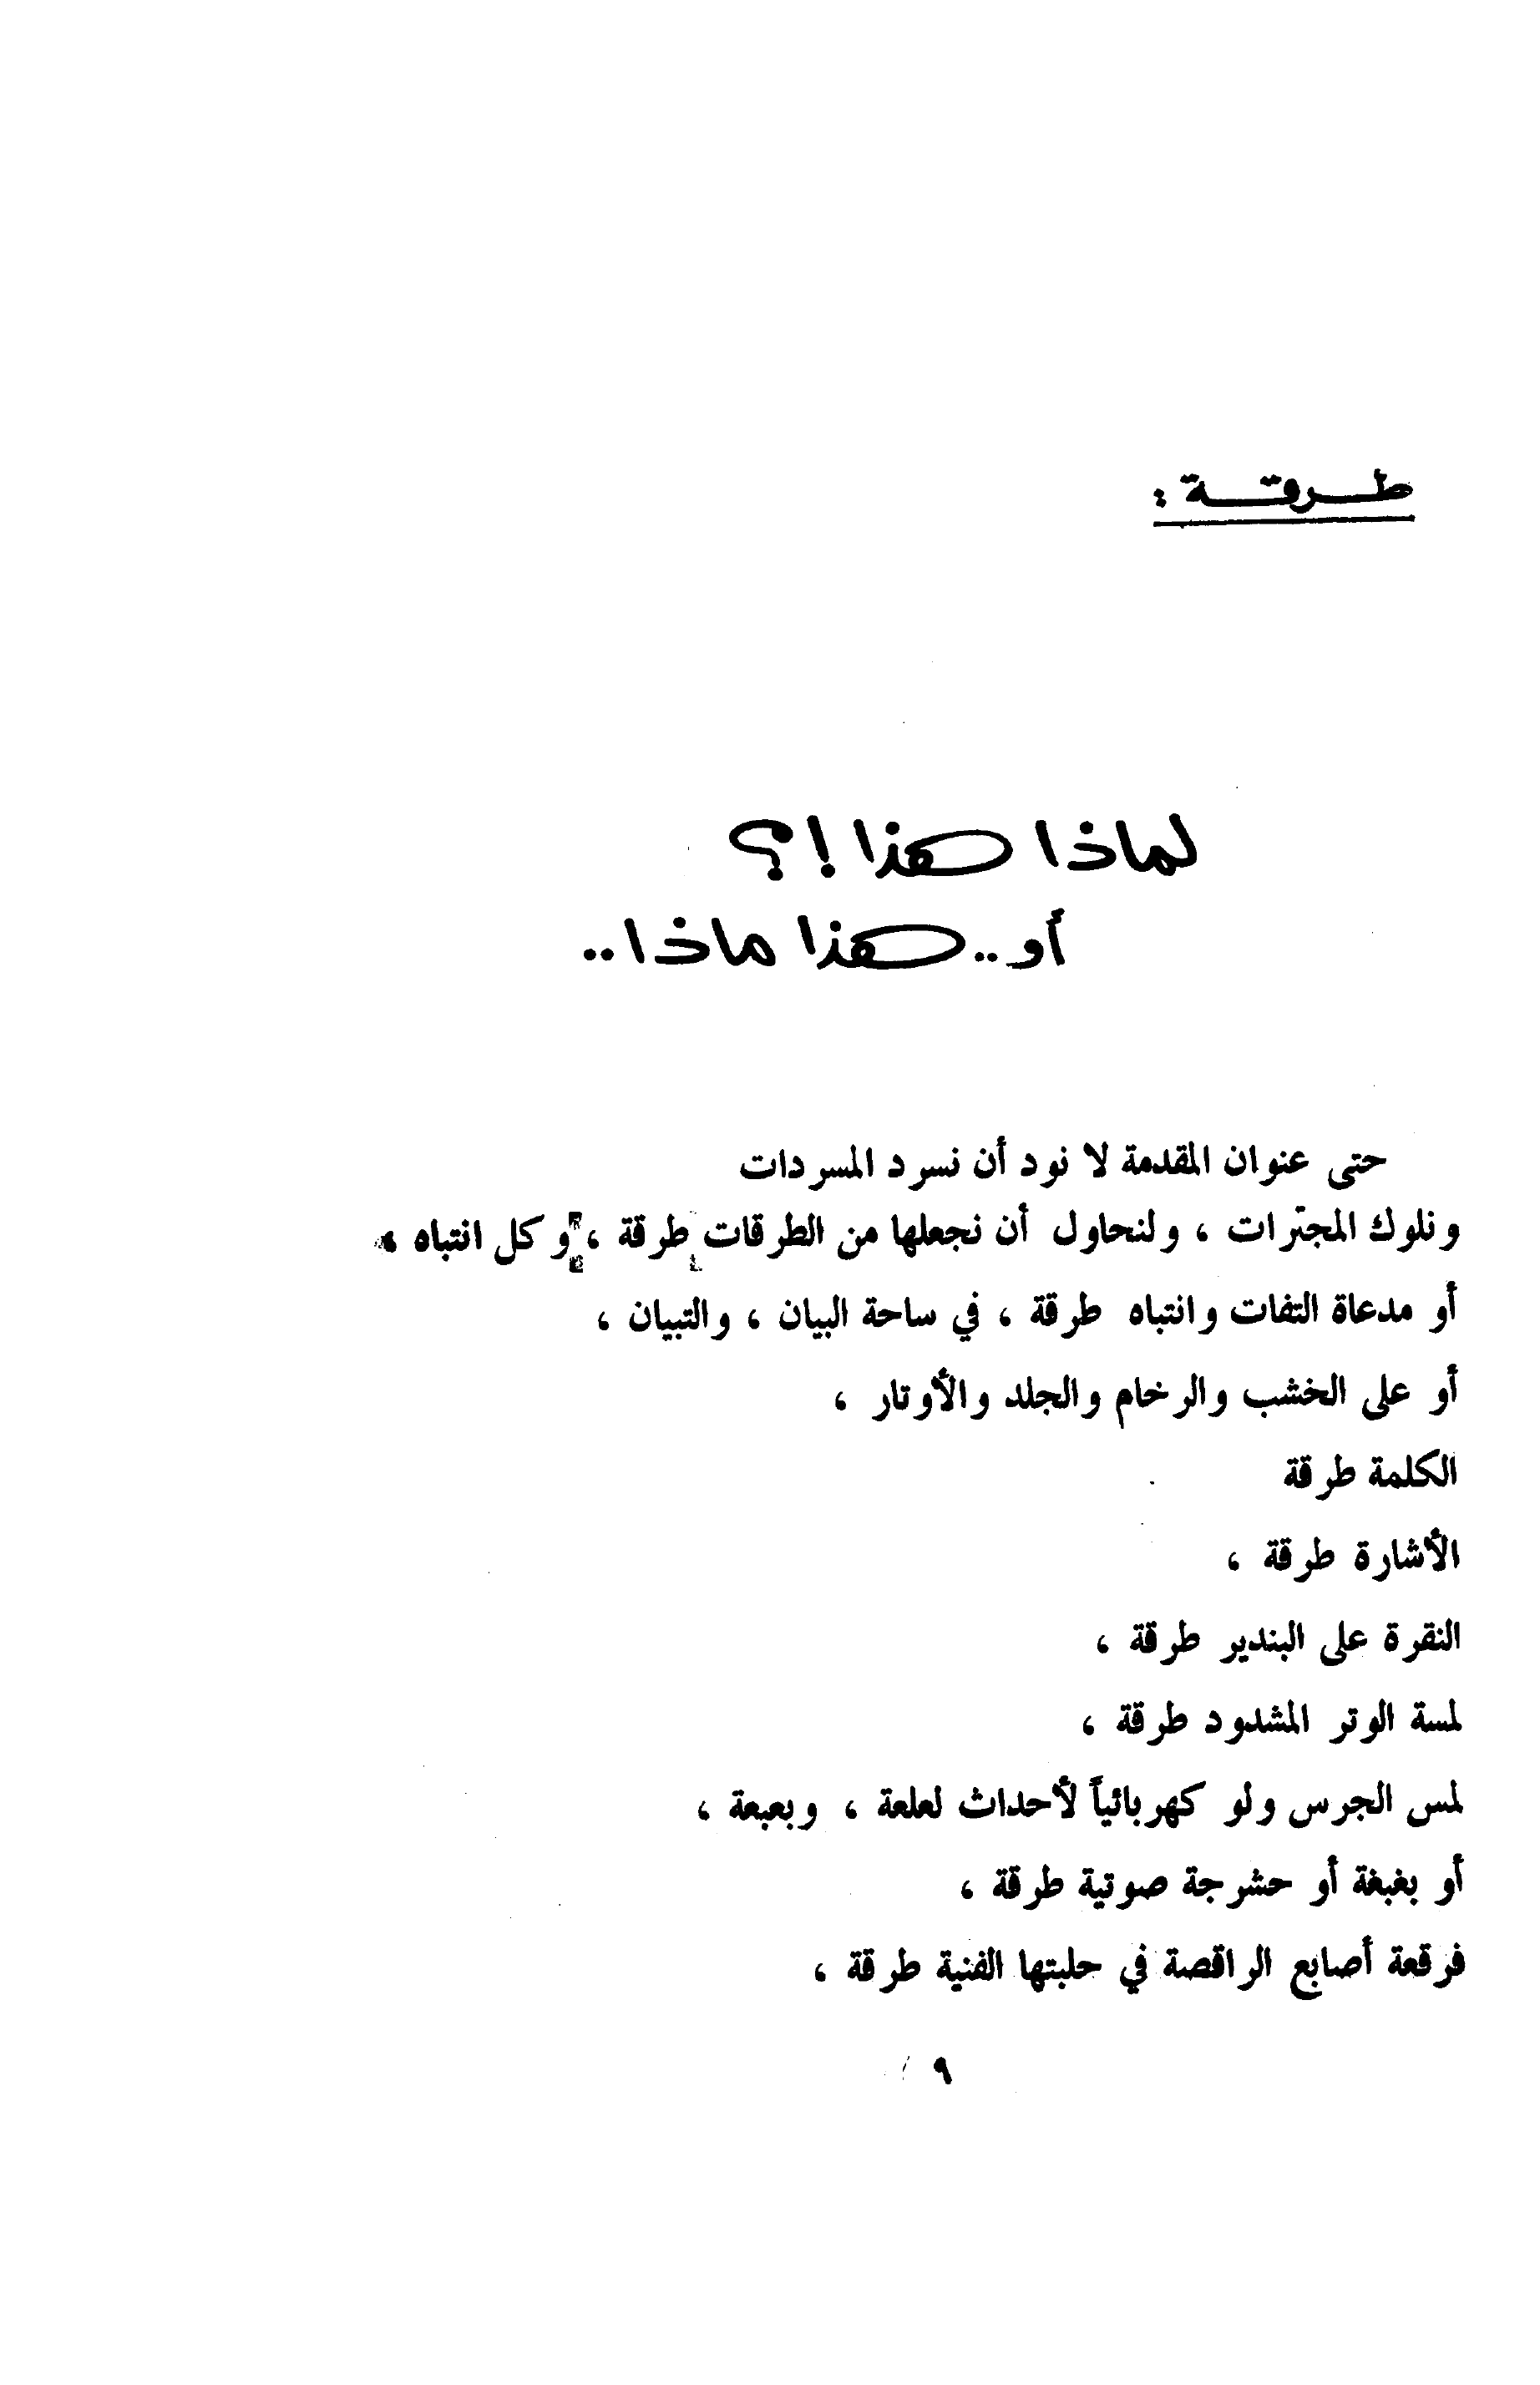 طرقة :
لماذا هذا !؟
أو .. هذا ماذا ..
حتى عنوان المقدمة لا نود أن نسرد المسردات
ونلوك المجترات ، ولنحاول أن نجعلها من الطرقات طرقة ، وكل انتباه ،
أو مدعاة التفات وانتباه طرقة ، في ساحة البيان ، والتبيان ،
أو على الخشب والرخام والجلد والأوتار ،
الكلمة طرقة
الأشارة طرقة ،
النقرة على البندير طرقة ،
لمسة الوتر المشدود طرقة ،
لمس الجرس ولو كهربائياً لأحداث لعلعة ، وبعبعة ،
أو بغبغة أو حشرجة صوتية طرقة ،
فرقعة أصابع الراقصة في حلبتها الفنية طرقة ،
٩